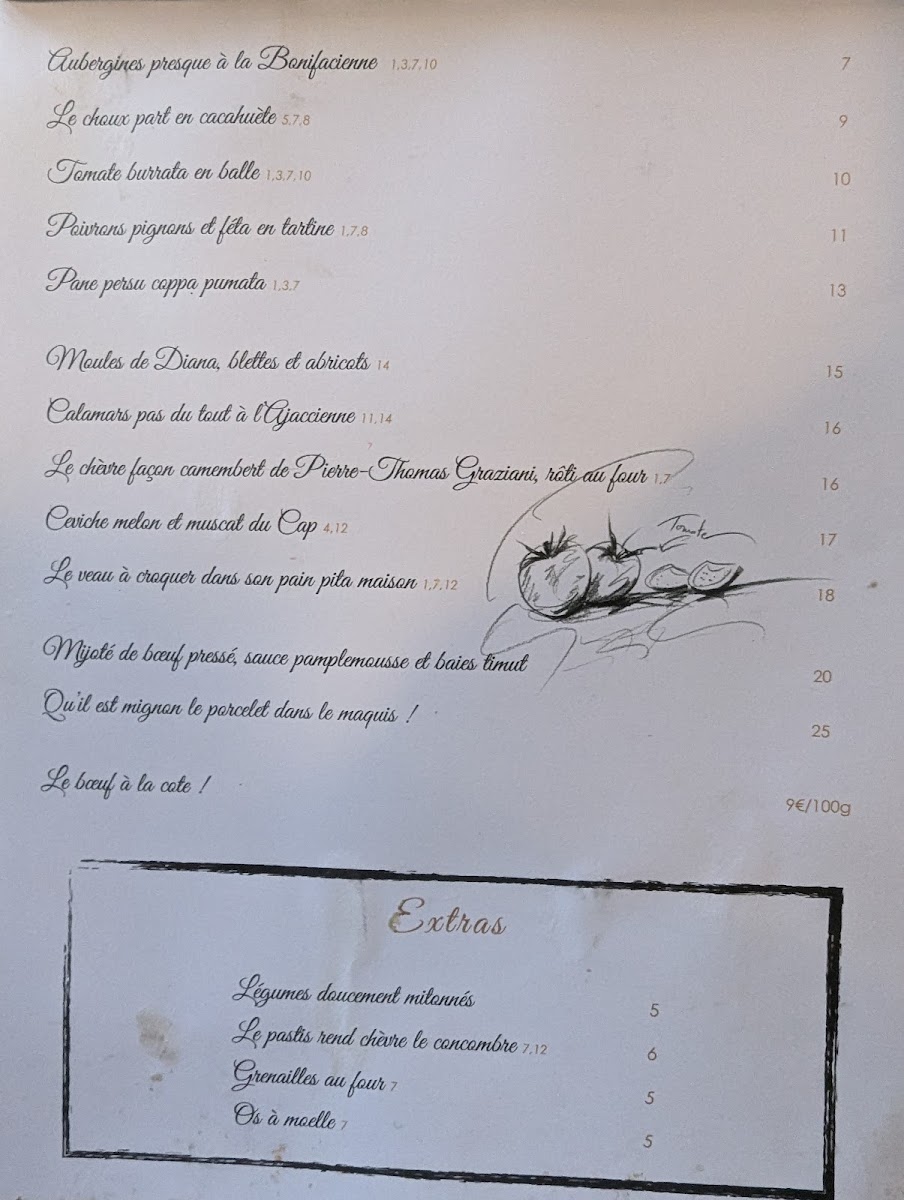 Aubergines presque à la Bonifacienne 1,3,7,10 7
Le choux part en cacahuète 5,7,8 9
Tomate burrata en balle 1,3,7,10 10
Poivrons pignons et féta en tartine 1,7,8 11
Pane persu coppa pumata 1,3,7 13
Moules de Diana, blettes et abricots 14 15
Calamars pas du tout à l'Ajaccienne 11,14 16
Le chèvre façon camembert de Pierre-Thomas Graziani, rôti au four 1,7 16
Tomate
Ceviche melon et muscat du Cap 4,12 17
Le veau à croquer dans son pain pita maison 1,7,12 18
Mijoté de bœuf pressé, sauce pamplemousse et baies timut 20
Qu'il est mignon le porcelet dans le maquis ! 25
Le bœuf à la cote ! 9€/100g
Extras
Légumes doucement mitonnés 5
Le pastis rend chèvre le concombre 7,12 6
Grenailles au four 7 5
Os à moelle 7 5